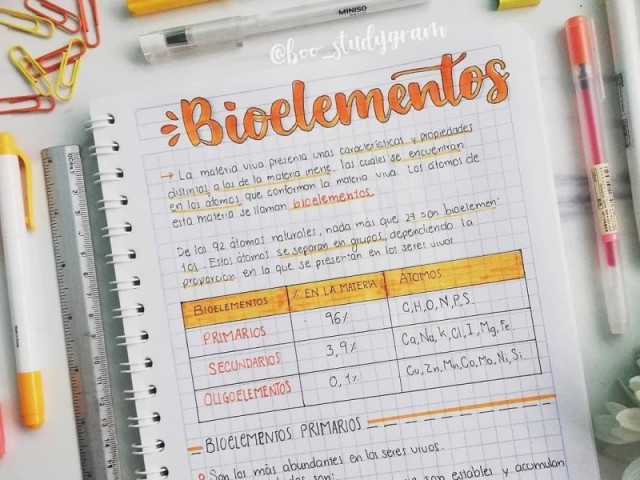 MINISO
@boo_studygram
Bioelementos
→ La materia viva presenta unas características y propiedades
distintas a las de la materia inerte, las cuales se encuentran
en los átomos que conforman la materia viva. Los átomos de
esta materia se llaman bioelementos.
De los 92 átomos naturales, nada más que 27 son bioelemen-
tos. Estos átomos se separan en grupos, dependiendo la
proporción en la que se presentan en los seres vivos.
BIOELEMENTOS % EN LA MATERIA ÁTOMOS
PRIMARIOS 96% C,H,O,N,P,S.
SECUNDARIOS 3,9% Ca,Na,K,Cl,I,Mg,Fe.
OLIGOELEMENTOS 0,1% Cu,Zn,Mn,Co,Mo,Ni,Si.
BIOELEMENTOS PRIMARIOS
Son los más abundantes en los seres vivos.
son estables y acumulan